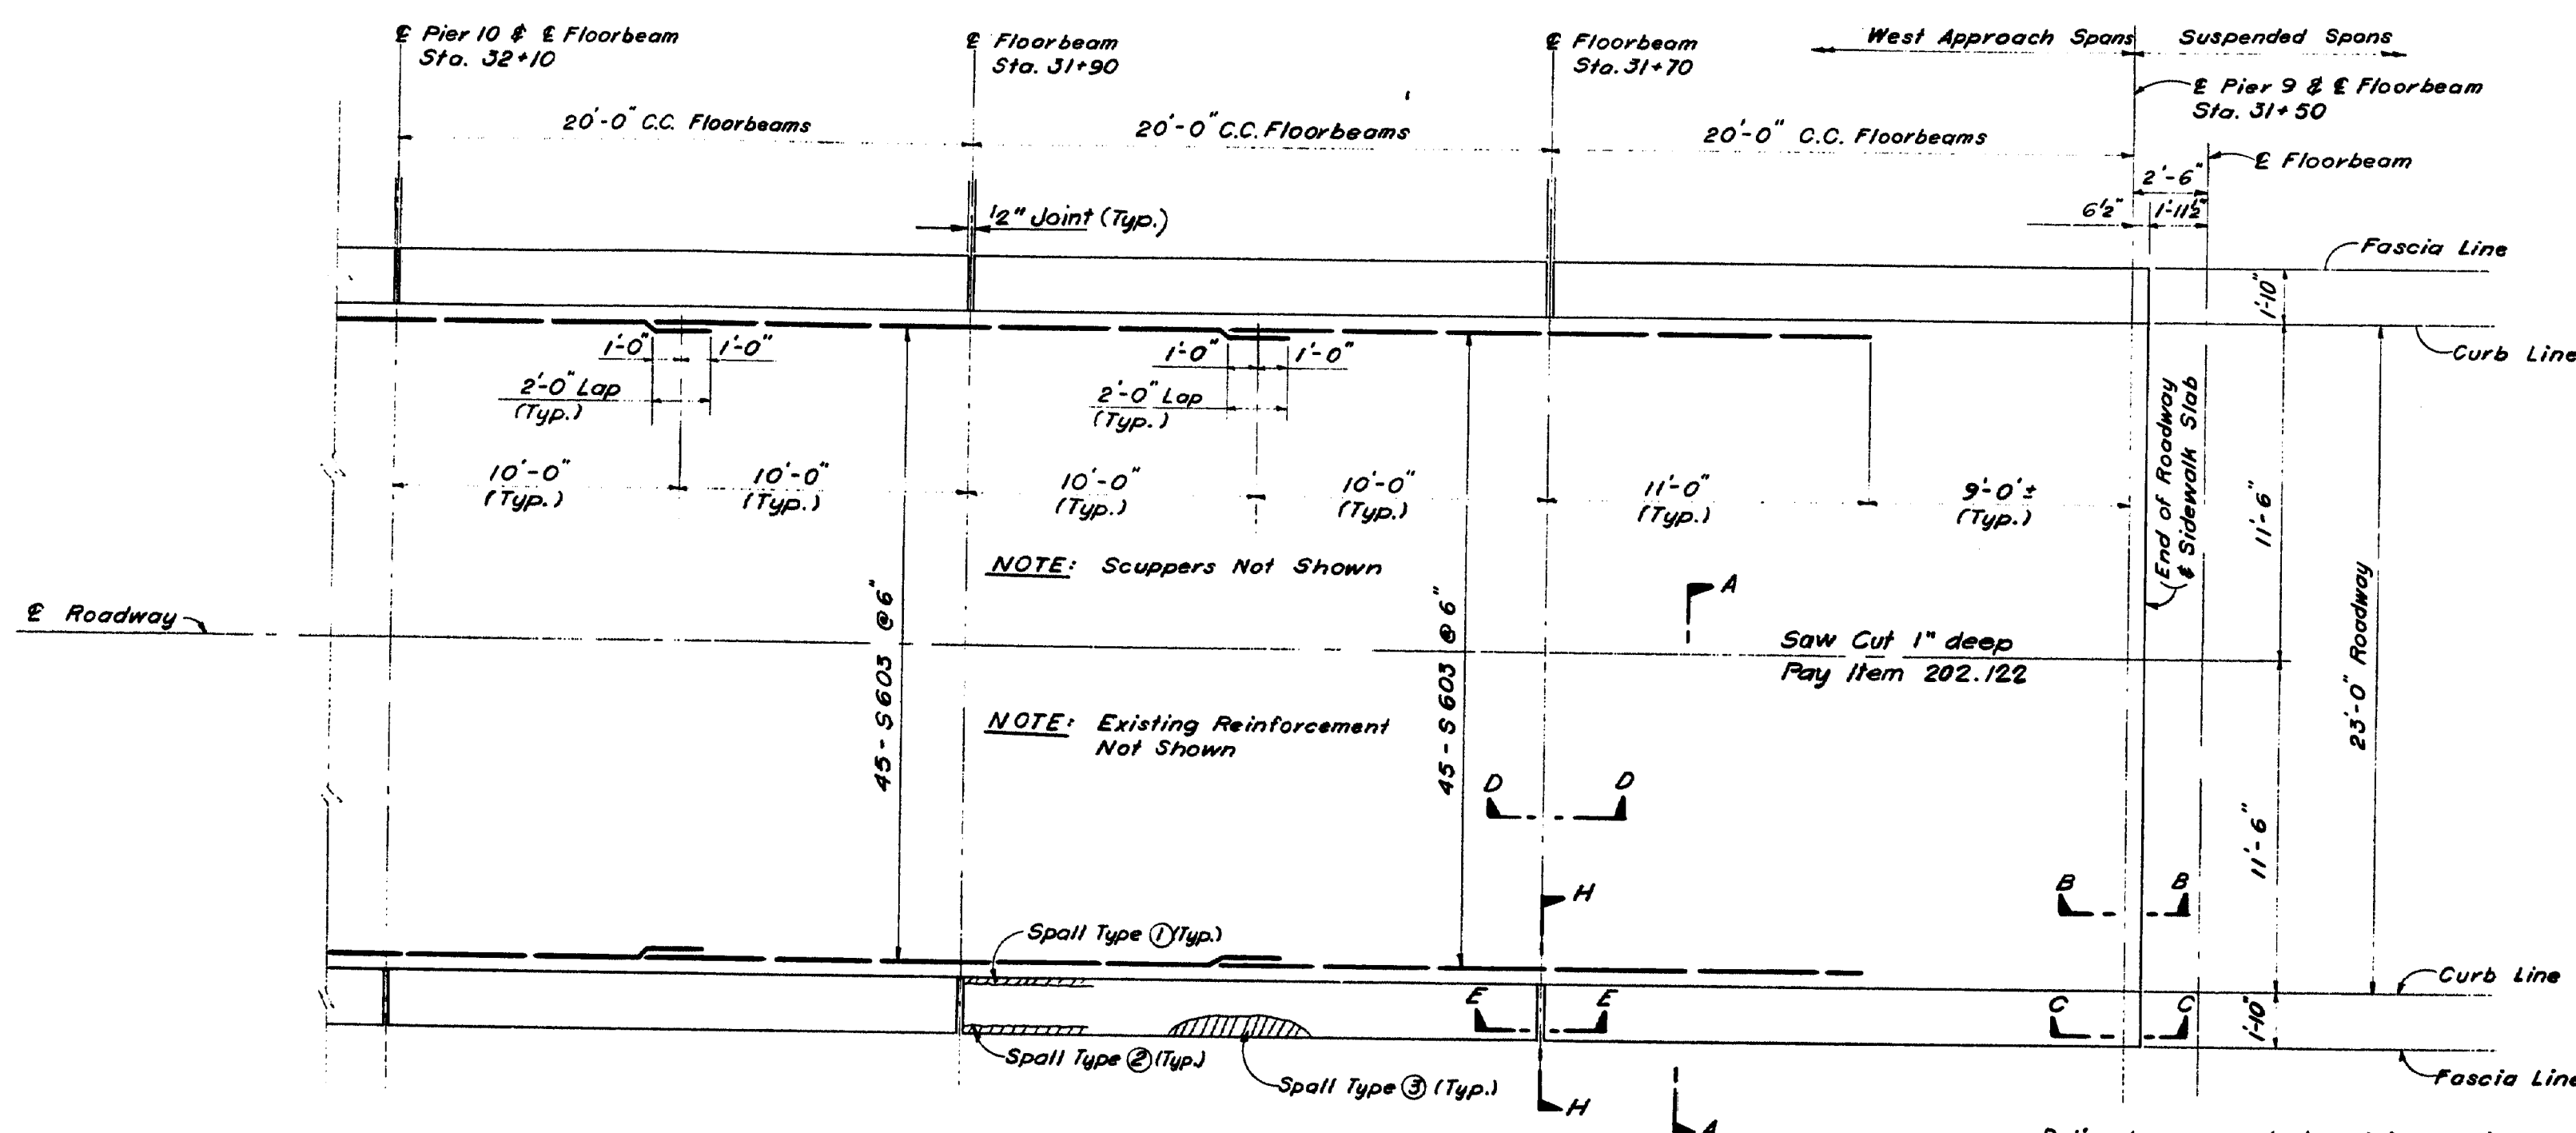 ℄ Pier 10 & ℄ Floorbeam
Sta. 32+10
℄ Floorbeam
Sta. 31+90
℄ Floorbeam
Sta. 31+70
West Approach Spans
Suspended Spans
℄ Pier 9 & ℄ Floorbeam
Sta. 31+50
20'-0" C.C. Floorbeams
20'-0" C.C. Floorbeams
20'-0" C.C. Floorbeams
℄ Floorbeam
2'-6"
6½"
1'-11½"
½" Joint (Typ.)
Fascia Line
1'-10"
Curb Line
1'-0"
1'-0"
1'-0"
1'-0"
2'-0" Lap
(Typ.)
2'-0" Lap
(Typ.)
10'-0"
(Typ.)
10'-0"
(Typ.)
10'-0"
(Typ.)
10'-0"
(Typ.)
11'-0"
(Typ.)
9'-0"±
(Typ.)
End of Roadway
& Sidewalk Slab
11'-6"
NOTE: Scuppers Not Shown
A
℄ Roadway
45-S603 @ 6"
45-S603 @ 6"
Saw Cut 1" deep
Pay Item 202.122
23'-0" Roadway
NOTE: Existing Reinforcement
Not Shown
D
D
11'-6"
H
B
B
Spall Type ① (Typ.)
Curb Line
E
E
C
C
1'-10"
Spall Type ② (Typ.)
Spall Type ③ (Typ.)
Fascia Line
H
A